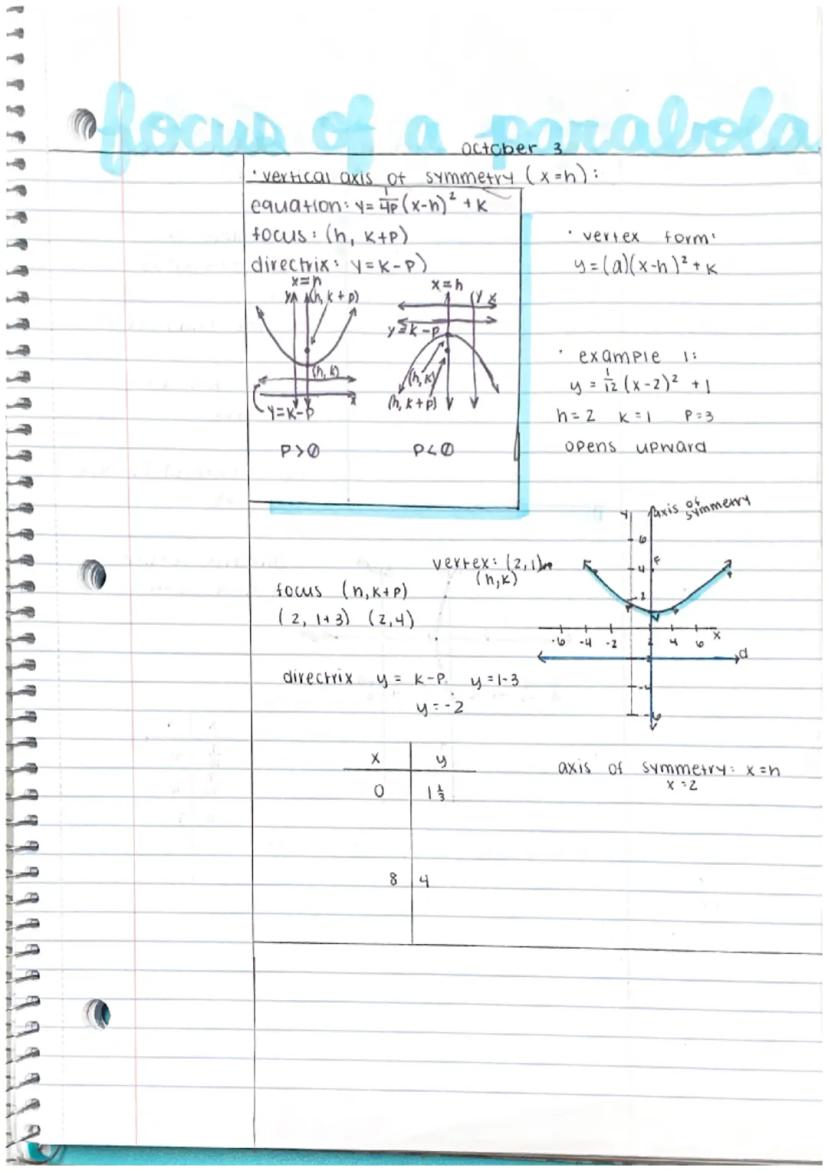 focus of a parabola
october 3
· vertical axis of symmetry (x=h):
equation: y= 1/4p (x-h)² + k
focus: (h, k+p)
directrix: y=k-p)
x=h
y
(h, k+p)
(h, k)
x
y=k-p
p>0
x=h
y x
y=k-p
(h, k)
(h, k+p)
p<0
· vertex form:
y=(a)(x-h)² + k
· example 1:
y = 1/12 (x-2)² + 1
h=2 k=1 p=3
opens upward
vertex: (2,1)
(h,k)
focus (h,k+p)
(2, 1+3) (2,4)
directrix y = k-p. y=1-3
y=-2
y
axis of symmetry
6
4 F
2 V
-6 -4 -2 2 4 6 x
-2 d
-4
-6
x y
0 1 1/3
8 4
axis of symmetry: x=h
x=2